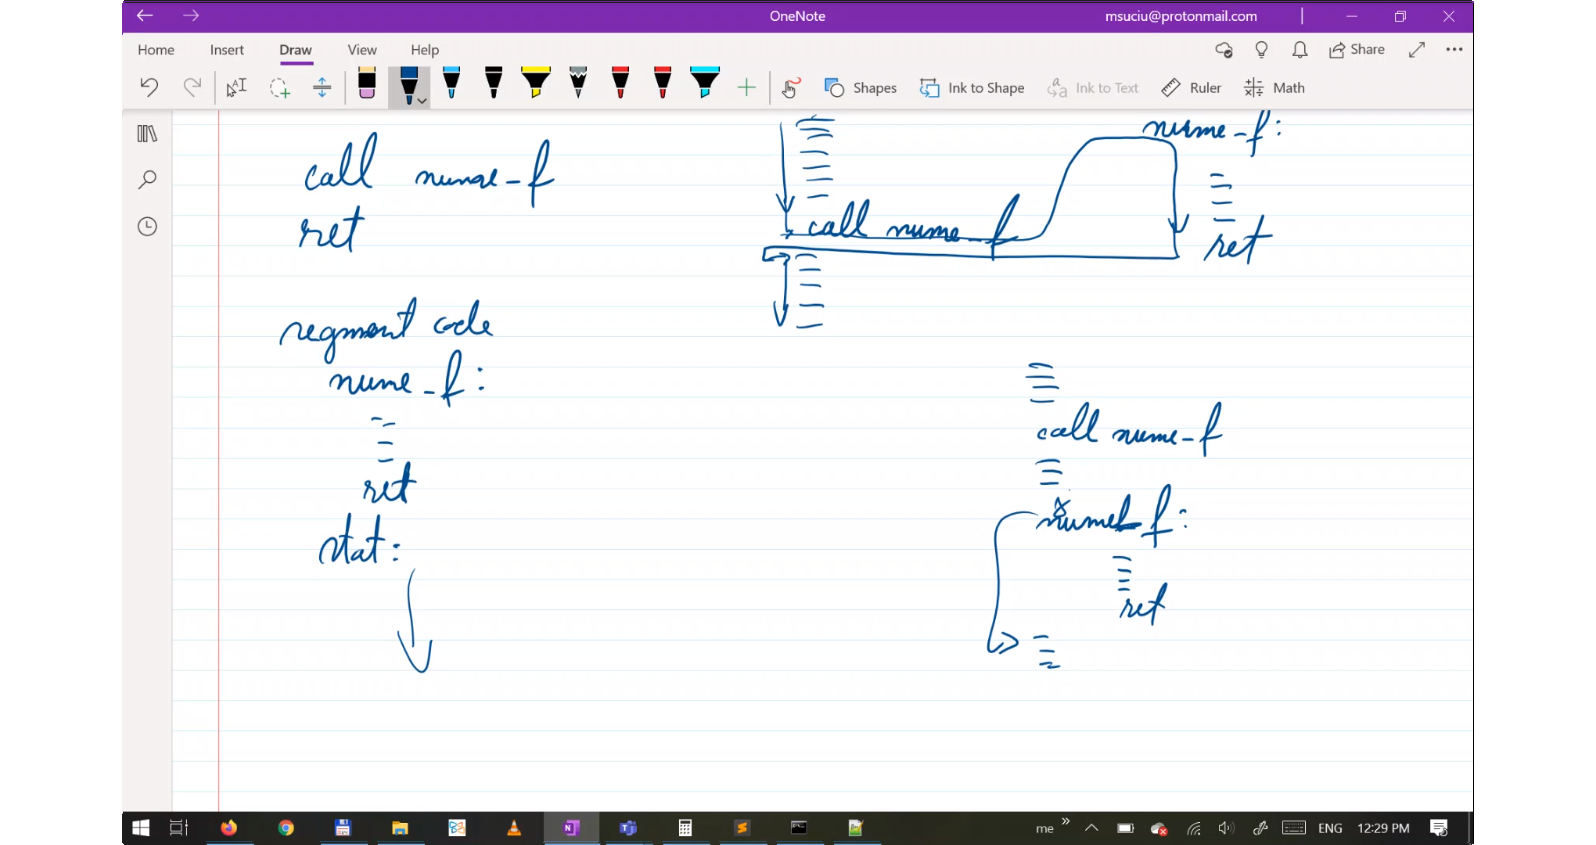 OneNote
msuciu@protonmail.com
Home Insert Draw View Help
Share
Shapes Ink to Shape Ink to Text Ruler Math
call nume_f
ret
segment code
nume_f:
ret
stat:
nume_f:
call nume_f
ret
call nume_f
nume_f:
ret
me ENG 12:29 PM